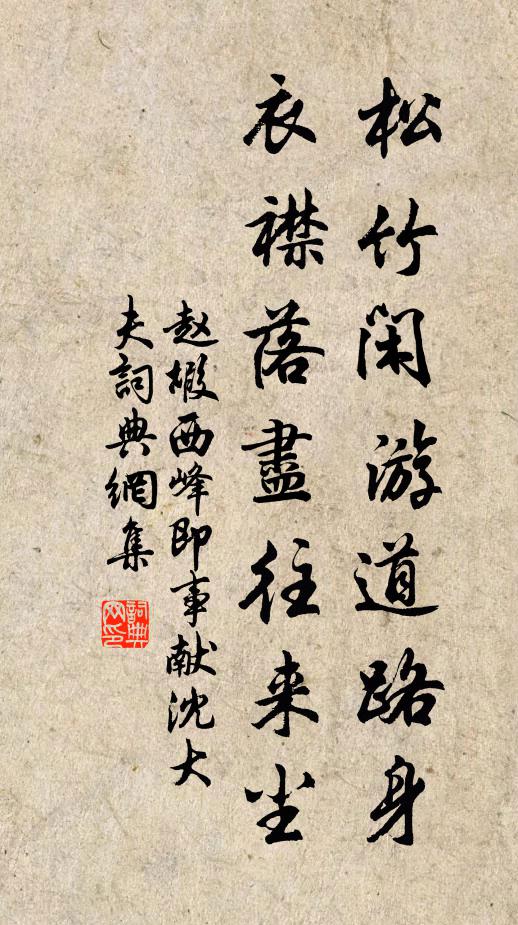 松竹閑游道路身
衣襟落盡往来尘
赵嘏西峰即事献沈大
夫詞典網集
詞典网印